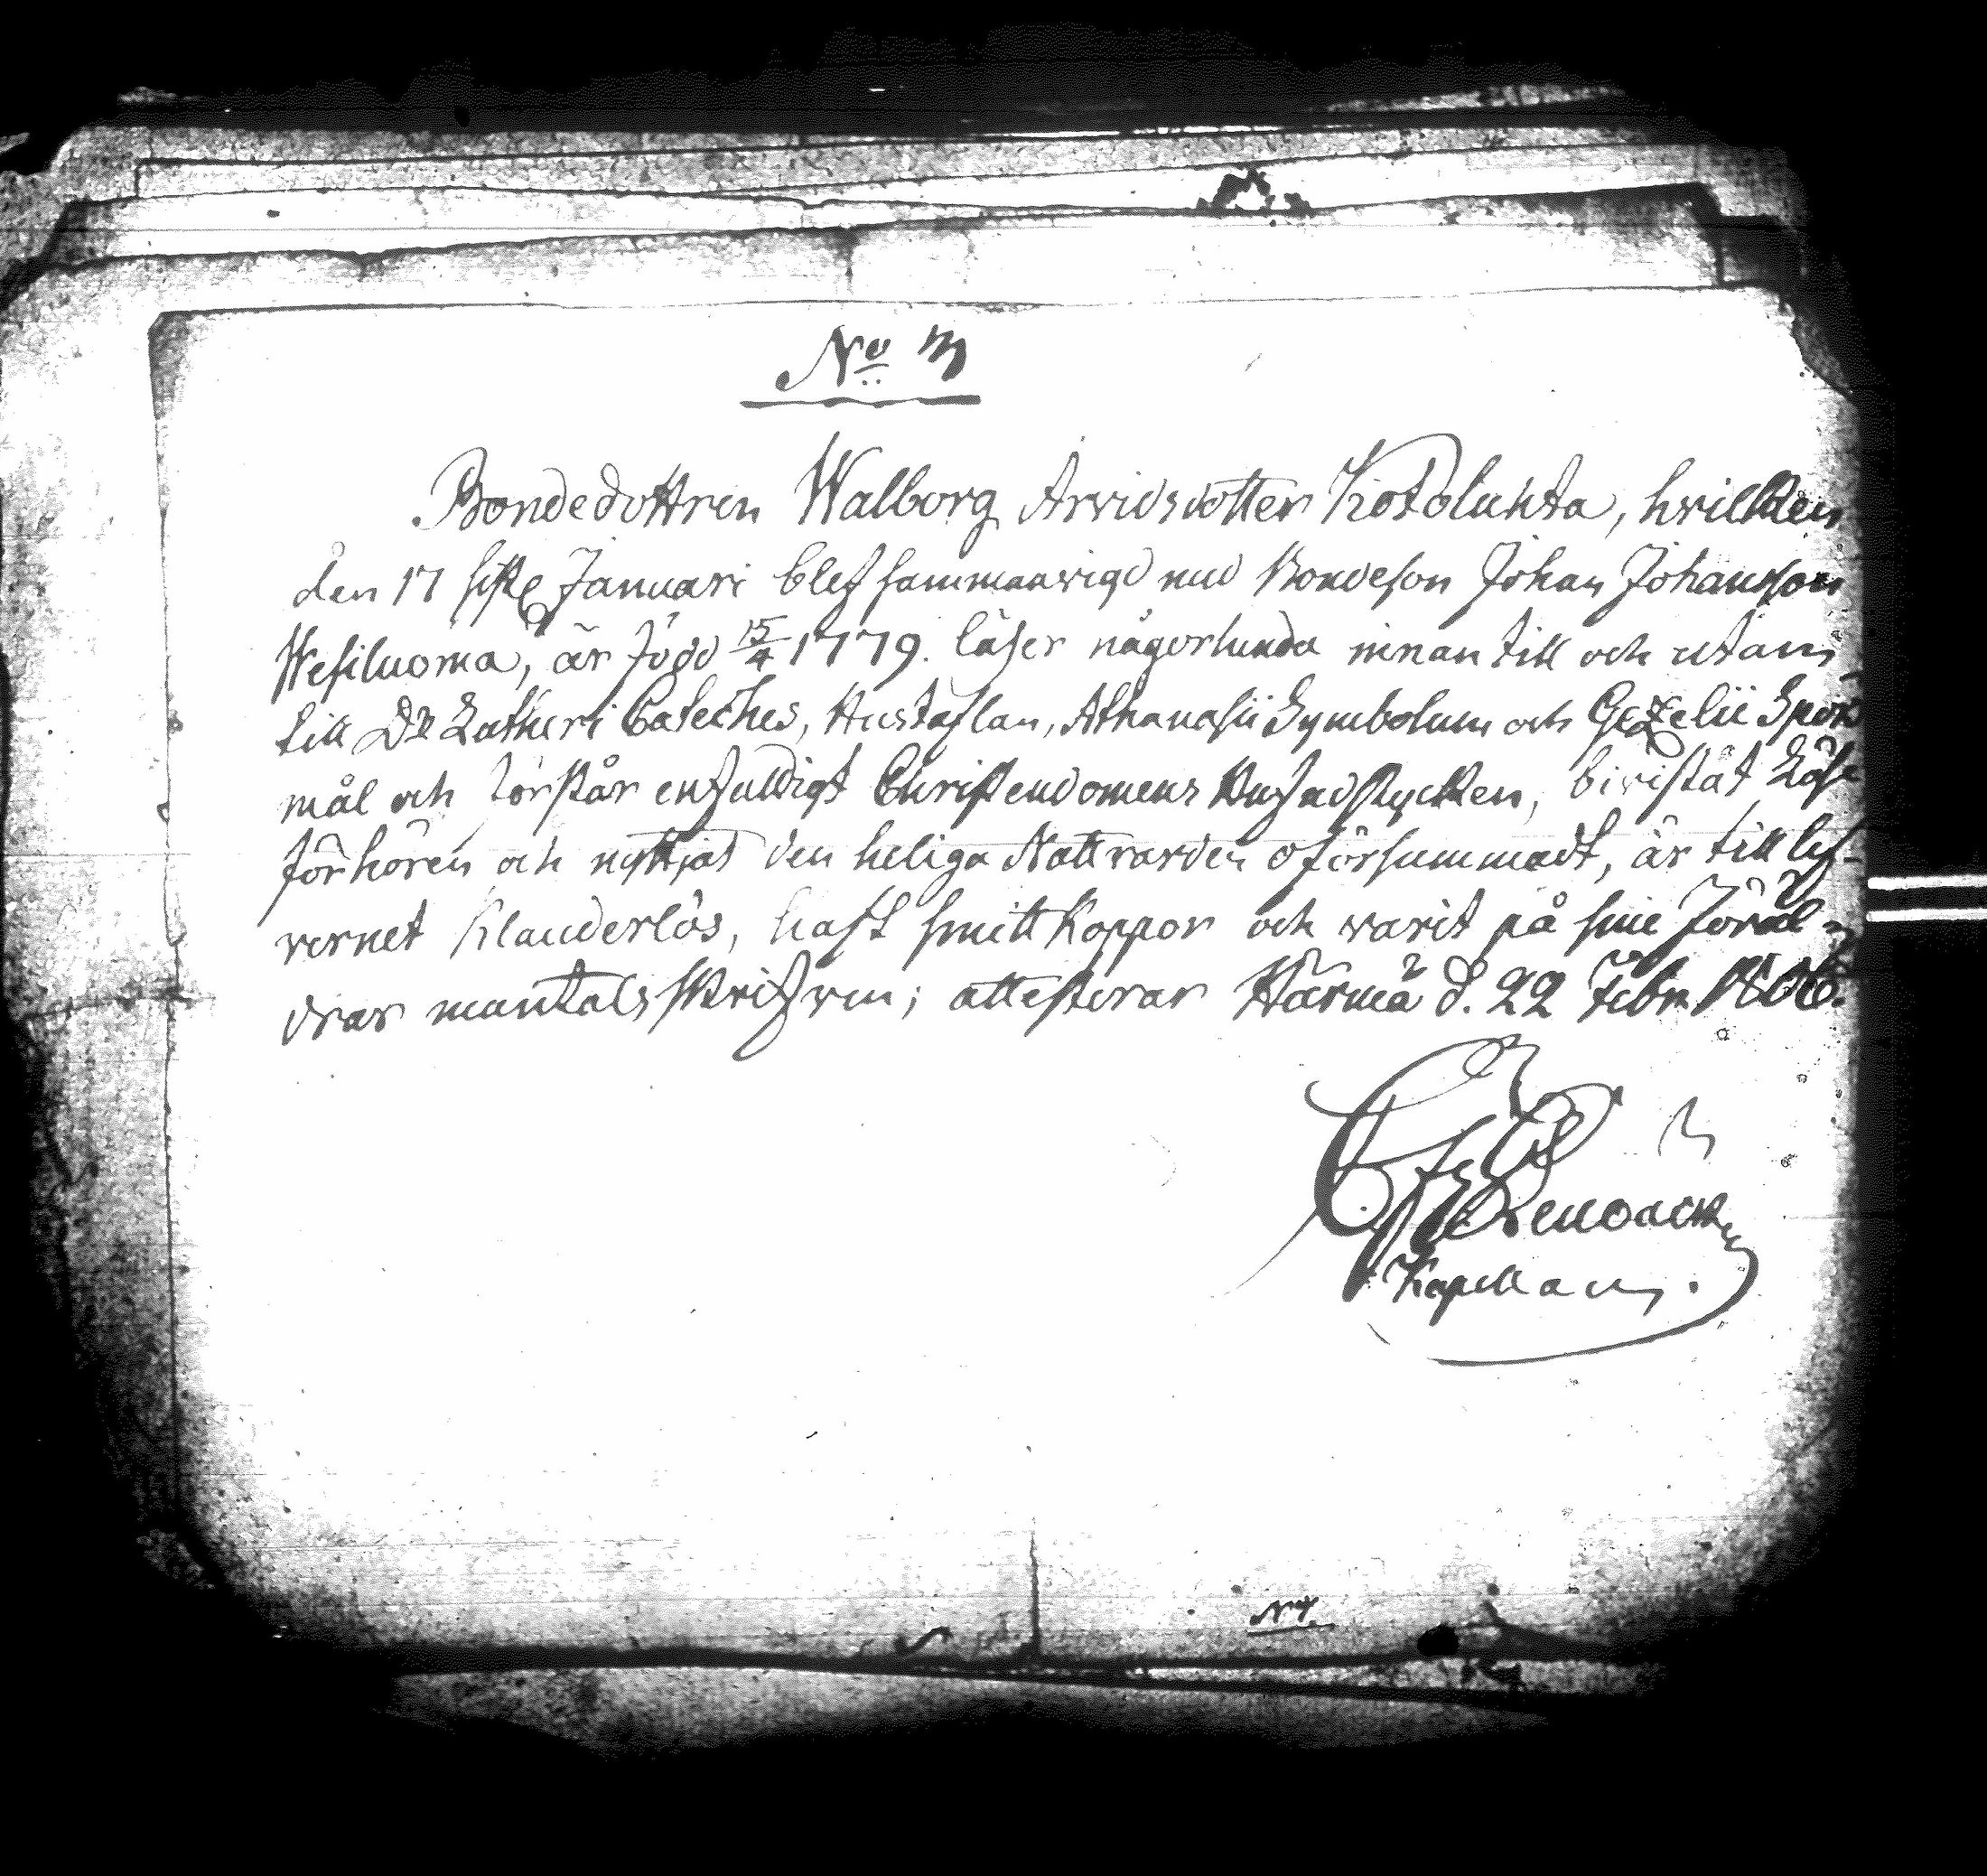 No 3
Bondedottren Walborg Arvidsdotter Kotoluhta, hvilken
den 17 sistl Januari blef sammanvigd med Bondeson Johan Johansson
Wesiluoma, är född 15/4 1779. läser någorlunda innan till och utan
till Dr Lutheri Cateches, Hustaflan, Athanasii Symbolum och Gezelii Spörs
mål och förstår enfaldigt Christendomens Hufvudstycken, bivistat Läse
förhören och nyttjat den heliga Nattvarden oförsummadt, är till lef-
vernet Klanderlös, haft smittkoppor och warit på sine Föräl-
drar mantalsskrifven; attesterar Härmä d. 22 Febr. 1806.
Kapellan.